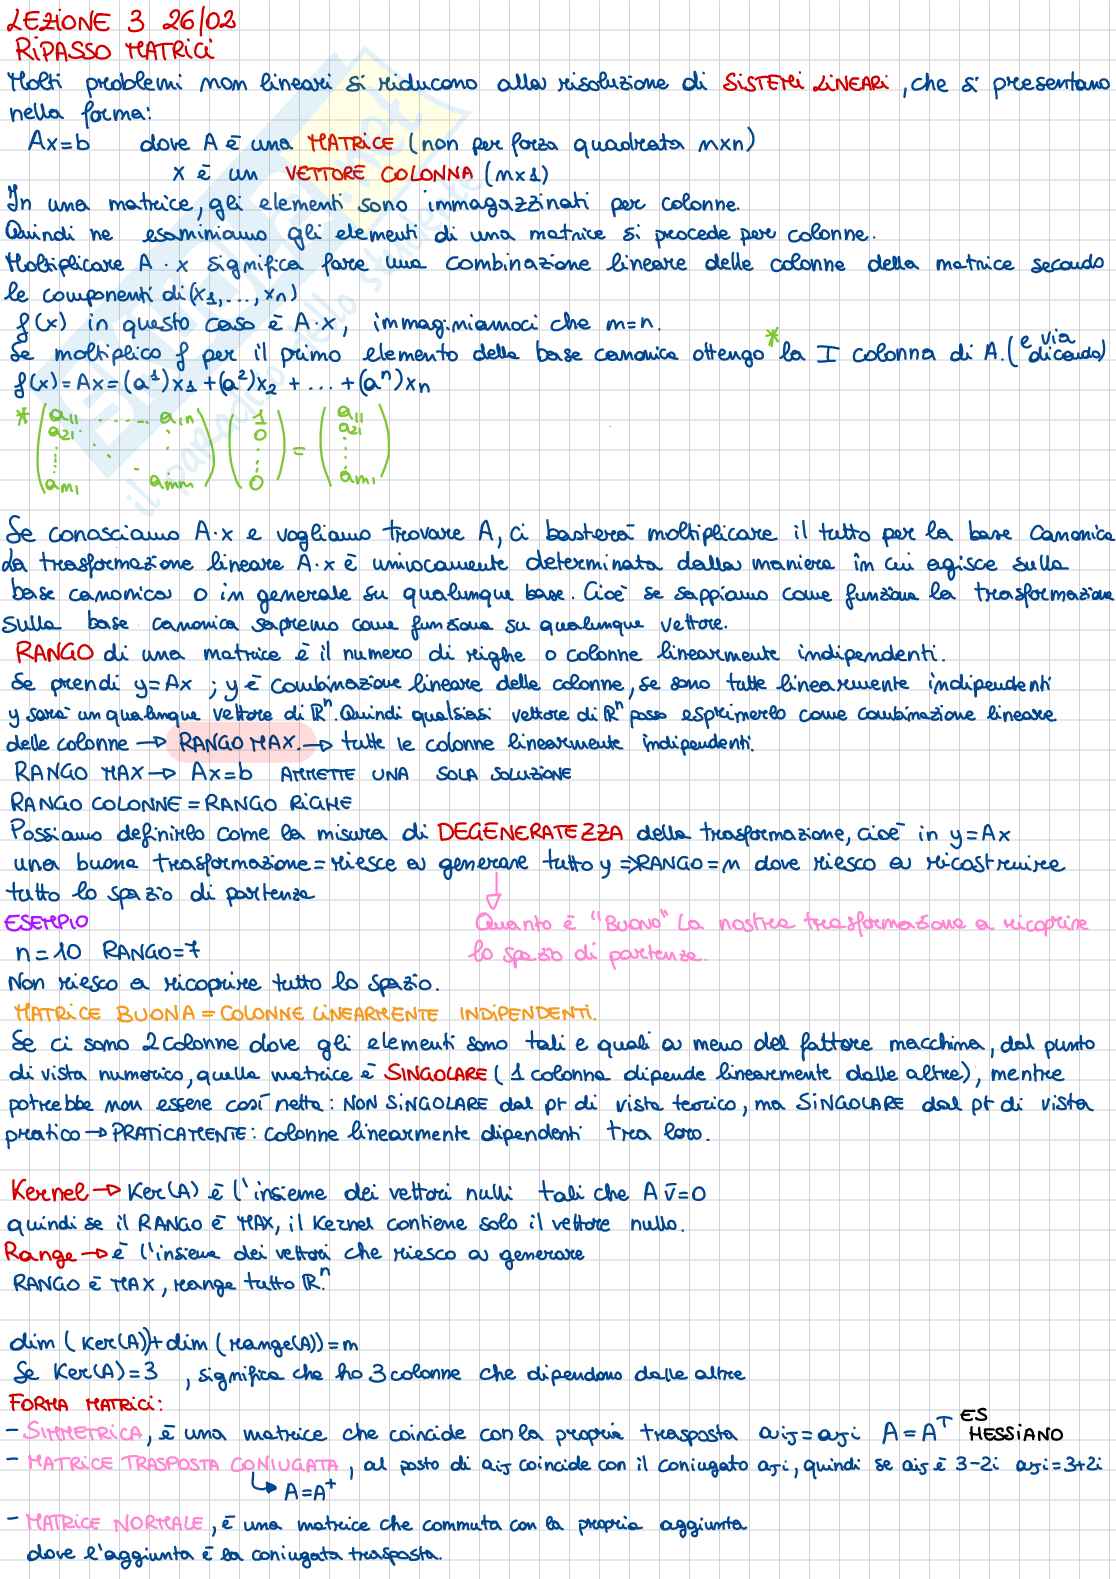 LEZIONE 3 26/02
RIPASSO MATRICI
Molti problemi non lineari si riducono alla risoluzione di SISTEMI LINEARI, che si presentano
nella forma:
Ax=b dove A è una MATRICE (non per forza quadrata mxn)
x è un VETTORE COLONNA (mx1)
In una matrice, gli elementi sono immagazzinati per colonne.
Quindi ne esaminiamo gli elementi di una matrice si procede per colonne.
Moltiplicare A·x significa fare una combinazione lineare delle colonne della matrice secondo
le componenti di (x1,...,xn)
f(x) in questo caso è A·x, immaginiamoci che m=n.
Se moltiplico f per il primo elemento della base canonica ottengo * la I colonna di A. (e via dicendo)
f(x)=Ax=(a¹)x1+(a²)x2+...+(aⁿ)xn
* (a11 ...... a1n) (1) = (a11)
a21 : 0 a21
: . . : : :
am1 amm 0 am1
Se conosciamo A·x e vogliamo trovare A, ci basterà moltiplicare il tutto per la base canonica
La trasformazione lineare A·x è univocamente determinata dalla maniera in cui agisce sulla
base canonica o in generale su qualunque base. Cioè se sappiamo come funziona la trasformazione
sulla base canonica sapremo come funziona su qualunque vettore.
RANGO di una matrice è il numero di righe o colonne linearmente indipendenti.
Se prendi y=Ax ; y è combinazione lineare delle colonne, se sono tutte linearmente indipendenti
y sarà un qualunque vettore di ℝⁿ. Quindi qualsiasi vettore di ℝⁿ posso esprimerlo come combinazione lineare
delle colonne → RANGO MAX. → tutte le colonne linearmente indipendenti.
RANGO MAX → Ax=b AMMETTE UNA SOLA SOLUZIONE
RANGO COLONNE = RANGO RIGHE
Possiamo definirlo come la misura di DEGENERATEZZA della trasformazione, cioè in y=Ax
una buona trasformazione = riesce a generare tutto y ⇒ RANGO=n dove riesco a ricostruire
tutto lo spazio di partenza
ESEMPIO
Quanto è "BUONO" La nostra trasformazione a ricoprire
lo spazio di partenza.
n=10 RANGO=7
Non riesco a ricoprire tutto lo spazio.
MATRICE BUONA = COLONNE LINEARMENTE INDIPENDENTI.
Se ci sono 2 colonne dove gli elementi sono tali e quali a meno del fattore macchina, dal punto
di vista numerico, quella matrice è SINGOLARE (1 colonna dipende linearmente dalle altre), mentre
potrebbe non essere così netta: NON SINGOLARE dal pt di vista teorico, ma SINGOLARE dal pt di vista
pratico → PRATICAMENTE: colonne linearmente dipendenti tra loro.
Kernel → Ker(A) è l'insieme dei vettori nulli tali che A v̄=0
quindi se il RANGO è MAX, il Kernel contiene solo il vettore nullo.
Range → è l'insieme dei vettori che riesco a generare
RANGO È MAX, range tutto ℝⁿ.
dim (Ker(A))+dim (range(A))=m
Se Ker(A)=3 , significa che ho 3 colonne che dipendono dalle altre
FORMA MATRICI:
- SIMMETRICA, è una matrice che coincide con la propria trasposta aij=aji A=Aᵀ ES HESSIANO
- MATRICE TRASPOSTA CONIUGATA, al posto di aij coincide con il coniugato aji, quindi se aij è 3-2i aji=3+2i
↳ A=A⁺
- MATRICE NORMALE, è una matrice che commuta con la propria aggiunta
dove l'aggiunta è la coniugata trasposta.